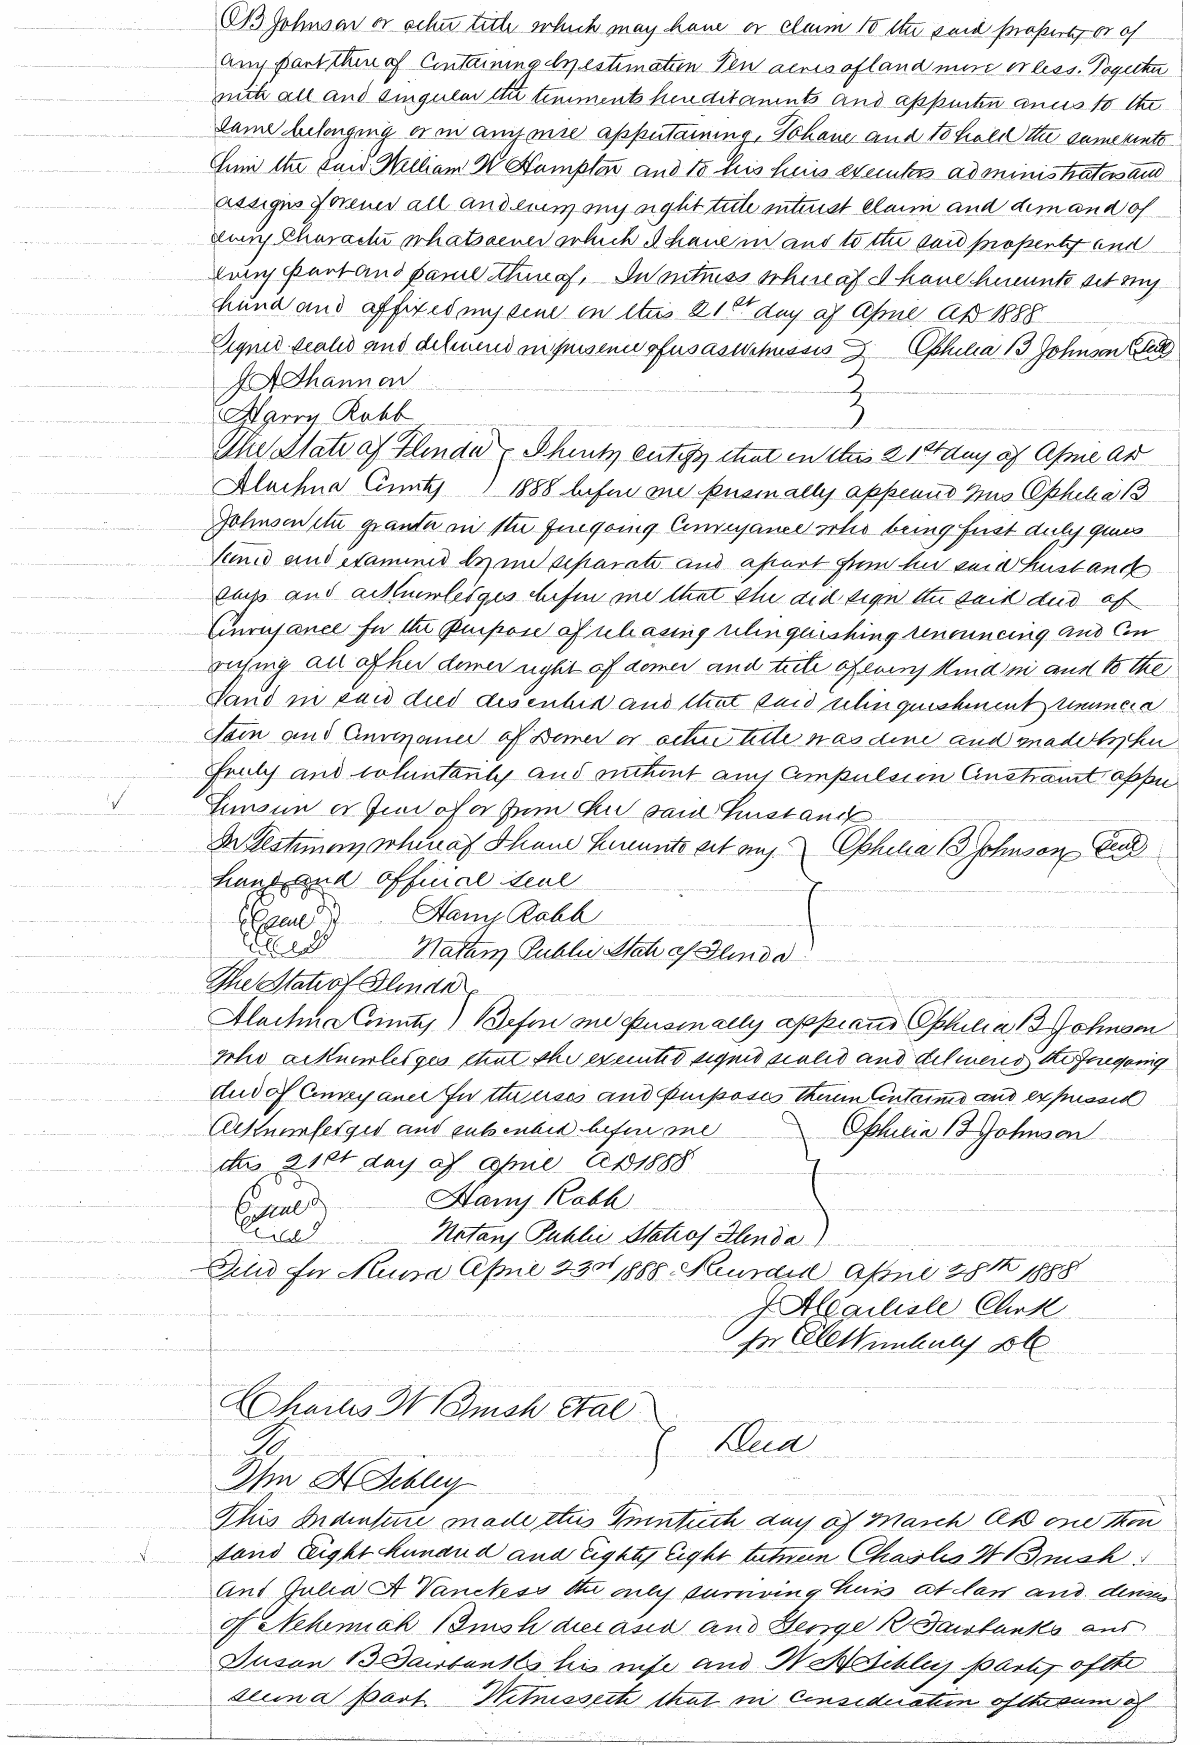 O B Johnson or other title which may have or claim to the said property or of
any part there of Containing by estimation Ten acres of land more or less. Together
with all and singular the teniments hereditaments and appurten ances to the
same belonging or in any wise appertaining, To have and to hold the same unto
him the said William W Hampton and to his heirs executors administrators and
assigns forever all and every my right title interest claim and demand of
every Character whatsoever which I have in and to the said property and
every part and parcel thereof, In witness whereof I have hereunto set my
hand and affixed my seal on this 21st day of April AD 1888
Signed sealed and delivered in presence of us as witnesses } Ophelia B Johnson Seal
J A Shannon
Harry Robb
The State of Florida } I hereby certify that on this 21st day of April AD
Alachua County ) 1888 before me personally appeared Mrs Ophelia B
Johnson the grantor in the foregoing Conveyance who being first duly ques
tioned and examined by me separate and apart from her said husband
says and acknowledges before me that she did sign the said deed of
Conveyance for the purpose of releasing relinquishing renouncing and Con
veying all of her dower right of dower and title of every kind in and to the
land in said deed described and that said relinquishment renuncia
tion and Conveyance of Dower or other title was done and made by her
freely and voluntarily and without any Compulsion Constraint appre
hension or fear of or from her said husband
In Testimony whereof I have hereunto set my } Ophelia B Johnson Seal
hand and official seal
Seal Harry Robb
Notary Public State of Florida
The State of Florida }
Alachua County ) Before me personally appeared Ophelia B Johnson
who acknowledges that she executed signed sealed and delivered the foregoing
deed of Conveyance for the uses and purposes therein Contained and expressed
Acknowledged and subscribed before me } Ophelia B Johnson
this 21st day of April AD 1888
Seal Harry Robb
Notary Public State of Florida )
Filed for Record April 23rd 1888 Recorded April 28th 1888
J A Carlisle Clerk
for Wimberly DC
Charles W Brush et al
To } Deed
Wm H Sebley
This Indenture made this Twentieth day of March AD one thou
sand Eight hundred and Eighty Eight between Charles W Brush
and Julia A Vanckess the only surviving heirs at law and devisees
of Nehemiah Brush deceased and George R Fairbanks and
Susan B Fairbanks his wife and W H Sebley party of the
second part Witnesseth that in Consideration of the sum of